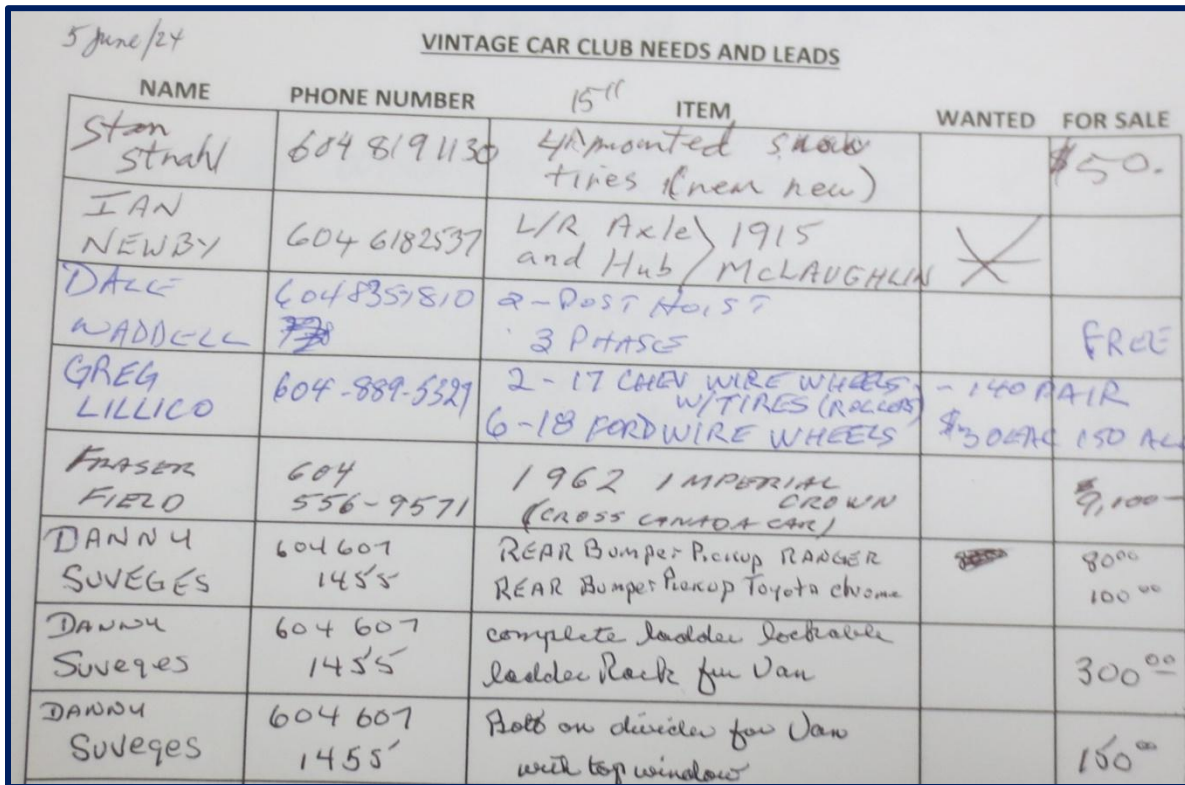 5 June/24
VINTAGE CAR CLUB NEEDS AND LEADS
NAME PHONE NUMBER ITEM WANTED FOR SALE
Stan Strahl 604 819 1130 4 15" mounted snow $50.
tires (near new)
IAN NEWBY 604 6182537 L/R Axle 1915
and Hub McLAUGHLIN X
DALE WADDELL 604 835 7810 2-POST HOIST
3 PHASE FREE
GREG LILLICO 604-889-5321 2-17 CHEV WIRE WHEELS - 140 PAIR
W/TIRES (ROLLERS)
6-18 FORD WIRE WHEELS $30 EAC 150 ALL
FRASER FIELD 604 556-9571 1962 IMPERIAL
CROWN 9,100-
(CROSS CANADA CAR)
DANNY SUVEGES 604 607 1455 REAR Bumper Pickup RANGER 8000
REAR Bumper Pickup Toyota chrome 100 00
DANNY Suveges 604 607 1455 complete ladder lockable
ladder Rack for Van 300 00
DANNY Suveges 604 607 1455 Bolt on divider for Van
with top window 150 00